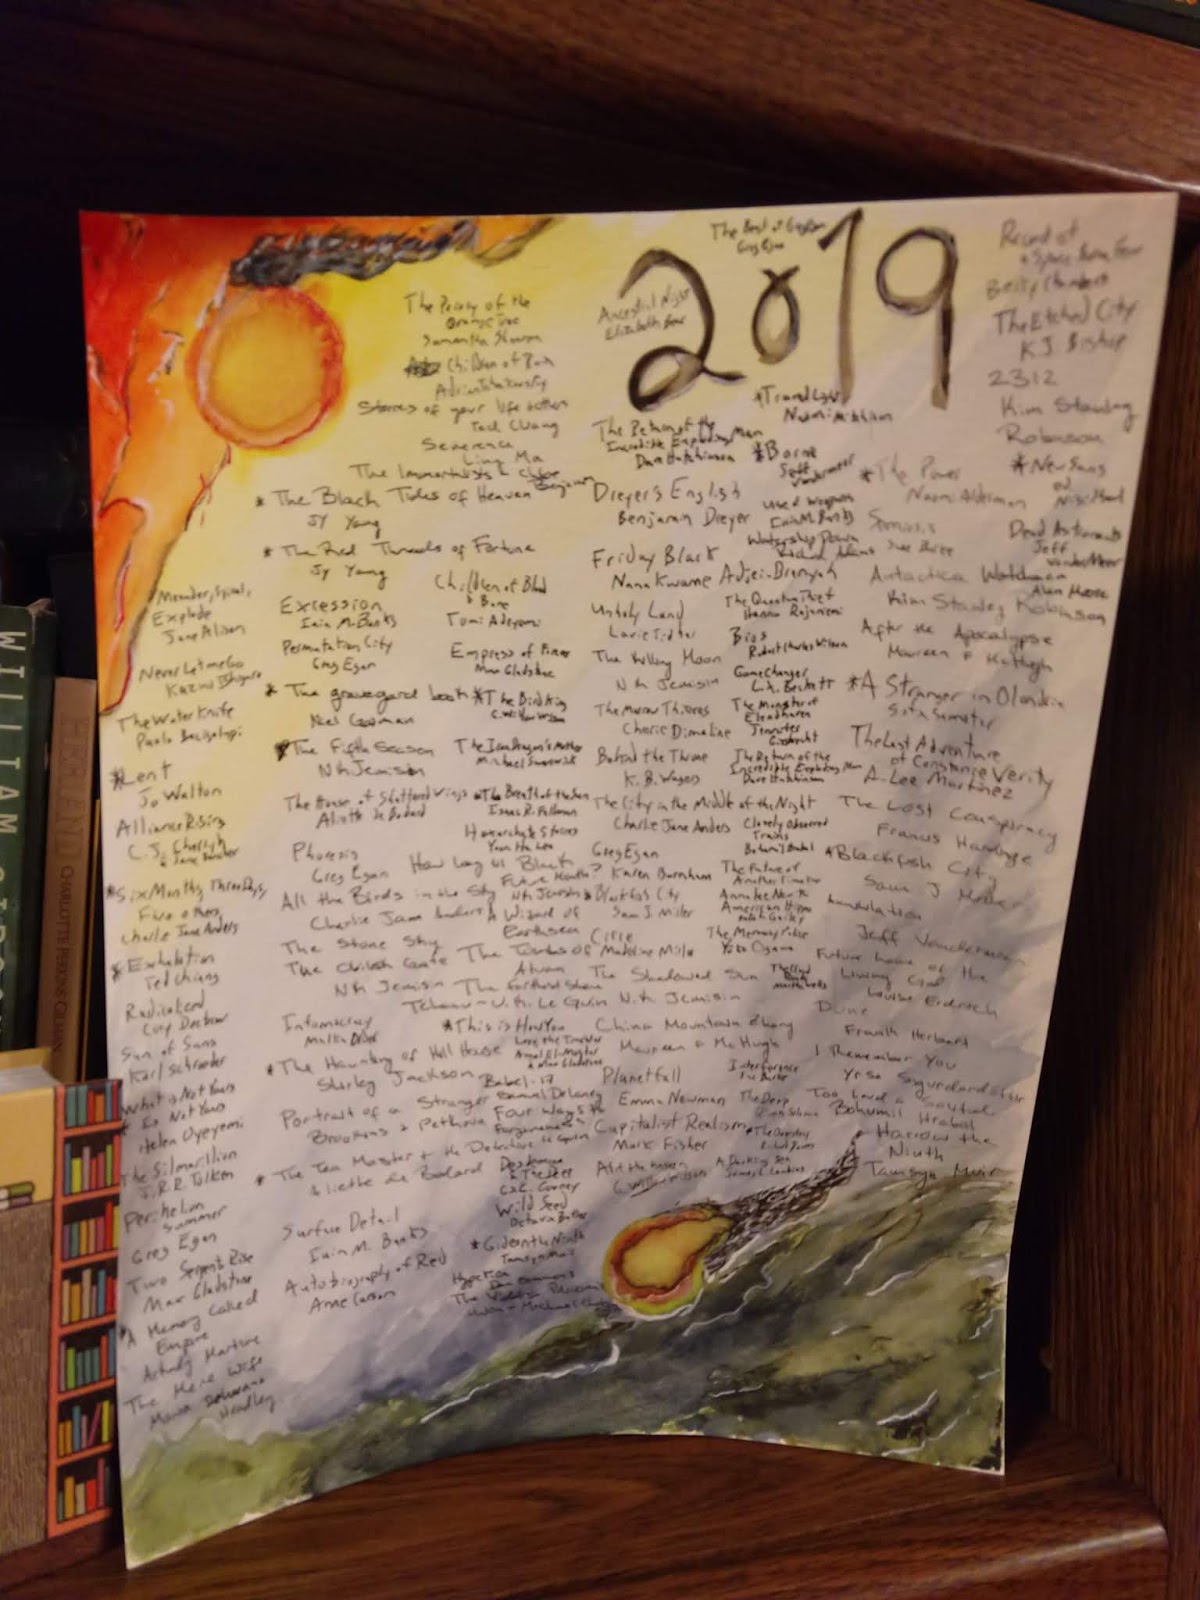 2019
The Best of Greg Egan
Greg Egan
The Priory of the
Orange Tree
Samantha Shannon
Children of Ruin
Adrian Tchaikovsky
Stories of your life + others
Ted Chiang
Severence
Ling Ma
The Immortalists - Chloe
Benjamin
* The Black Tides of Heaven
JY Yang
* The Red Threads of Fortune
JY Yang
Excession
Iain M. Banks
Permutation City
Greg Egan
* The graveyard book
Neil Gaiman
* The Fifth Season
NK Jemisin
The House of Shattered Wings
Aliette de Bodard
Phoresis
Greg Egan
All the Birds in the Sky
Charlie Jane Anders
The Stone Sky
The Obelisk Gate
NK Jemisin
Infomocracy
Malka Older
* The Haunting of Hill House
Shirley Jackson
Portrait of a Stranger
* The Tea Master + the Detective
Aliette de Bodard
Surface Detail
Iain M. Banks
Autobiography of Red
Anne Carson
Meander, Spiral,
Explode
Jane Alison
Never Let me Go
Kazuo Ishiguro
The Water Knife
Paolo Bacigalupi
*Lent
Jo Walton
Alliance Rising
C.J. Cherryh
+ Jane Fancher
*Six Months, Three Days,
Five others
Charlie Jane Anders
* Exhalation
Ted Chiang
Radicalized
Cory Doctorow
Sun of Suns
Karl Schroeder
What is Not Yours
is Not Yours
Helen Oyeyemi
The Silmarillion
J.R.R. Tolkien
Perihelion
Summer
Greg Egan
Two Serpents Rise
Max Gladstone
* A Memory Called
Empire
Arkady Martine
The Mere Wife
Maria Dahvana
Headley
Children of Blood
& Bone
Tomi Adeyemi
Empress of Forever
Max Gladstone
* The Bird King
G. Willow Wilson
The Iron Dragon's Mother
Michael Swanwick
The Breath of the Sun
Isaac R. Fellman
Hexarchate Stories
Yoon Ha Lee
How Long til Black
Future Month?
NK Jemisin
A Wizard of
Earthsea
The Tombs of
Atuan
The Farthest Shore
Tehanu - U.K. Le Guin
* This is How You
Lose the Time War
Amal El-Mohtar
& Max Gladstone
Babel-17
Samuel Delaney
Four Ways to
Forgiveness
Le Guin
Desdemona
& The Deep
C.S.E. Cooney
Wild Seed
Octavia Butler
* Gideon the Ninth
Tamsyn Muir
Hyperion
Dan Simmons
Ancestral Night
Elizabeth Bear
The Return of the
Incredible Exploding Man
Dave Hutchinson
Dreyer's English
Benjamin Dreyer
Friday Black
Nana Kwame Adjei-Brenyah
Unholy Land
Lavie Tidhar
The Killing Moon
NK Jemisin
The Marrow Thieves
Cherie Dimaline
Behind the Throne
K.B. Wagers
The City in the Middle of the Night
Charlie Jane Anders
Greg Egan
Karen Burnham
* Blackfish City
Sam J. Miller
Circe
Madeline Miller
The Shadowed Sun
N.K. Jemisin
China Mountain Zhang
Maureen F McHugh
Planetfall
Emma Newman
Capitalist Realism
Mark Fisher
Alif the Unseen
G. Willow Wilson
Travel Light
Naomi Mitchison
*Borne
Jeff
VanderMeer
Use of Weapons
Iain M. Banks
Watership Down
Richard Adams
The Quantum Thief
Hannu Rajaniemi
Bios
Robert Charles Wilson
Gamechanger
L.X. Beckett
The Monster of
Elendhaven
Jennifer
Giesbrecht
The Return of the
Incredible Exploding Man
Dave Hutchinson
Closely Observed
Trains
Bohumil Hrabal
The Future of
Another Timeline
Annalee Newitz
American Hippo
Sarah Gailey
The Memory Police
Yoko Ogawa
Interference
Sue Burke
The Deep
Rivers Solomon
Record of
a Space Born Few
Becky Chambers
The Etched City
KJ Bishop
2312
Kim Stanley
Robinson
* New Suns
ed Nisi Shawl
* The Power
Naomi Alderman
Semiosis
Sue Burke
Dead Astronauts
Jeff
VanderMeer
Watchmen
Alan Moore
Antarctica
Kim Stanley Robinson
After the Apocalypse
Maureen F McHugh
* A Stranger in Olondria
Sofia Samatar
The Last Adventure
of Constance Verity
A. Lee Martinez
The Lost Conspiracy
Francis Hardinge
* Blackfish City
Sam J Miller
Annihilation
Jeff Vandermeer
Future home of the
Living God
Louise Erdrich
Dune
Frank Herbert
I Remember You
Yrsa Sigurdardottir
Too Loud a Solitude
Bohumil Hrabal
* Harrow the
Ninth
Tamsyn Muir
WILLIAM GIBSON
CHARLOTTE PERKINS GILMAN